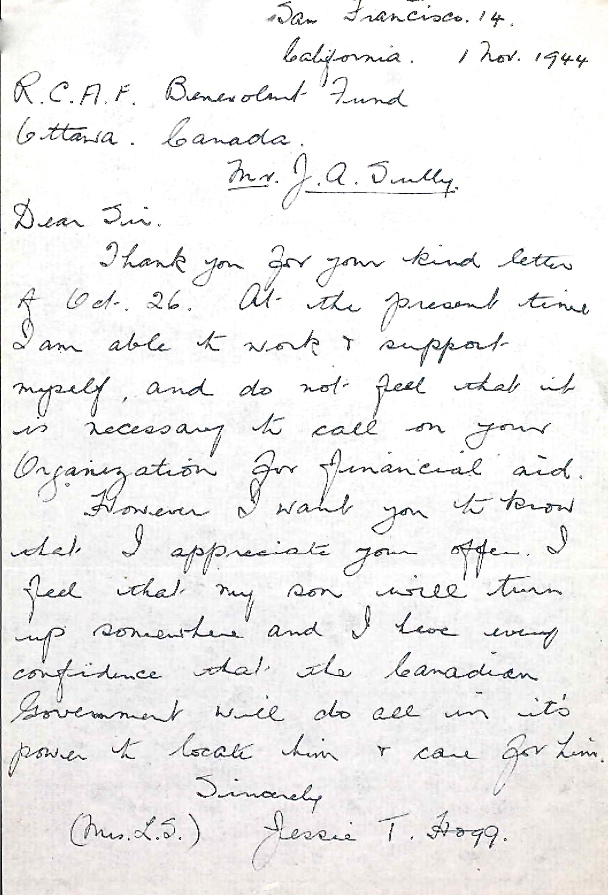 San Francisco. 14.
California. 1 Nov. 1944
R.C.A.F. Benevolent Fund
Ottawa. Canada.
Mr. J. A. Scully.
Dear Sir.
Thank you for your kind letter
of Oct. 26. At the present time
I am able to work & support
myself, and do not feel that it
is necessary to call on your
Organization for financial aid.
However I want you to know
that I appreciate your offer. I
feel that my son will turn
up somewhere and I have every
confidence that the Canadian
Government will do all in it's
power to locate him & care for him.
Sincerely
(Mrs. L.S.) Jessie T. Hogg.